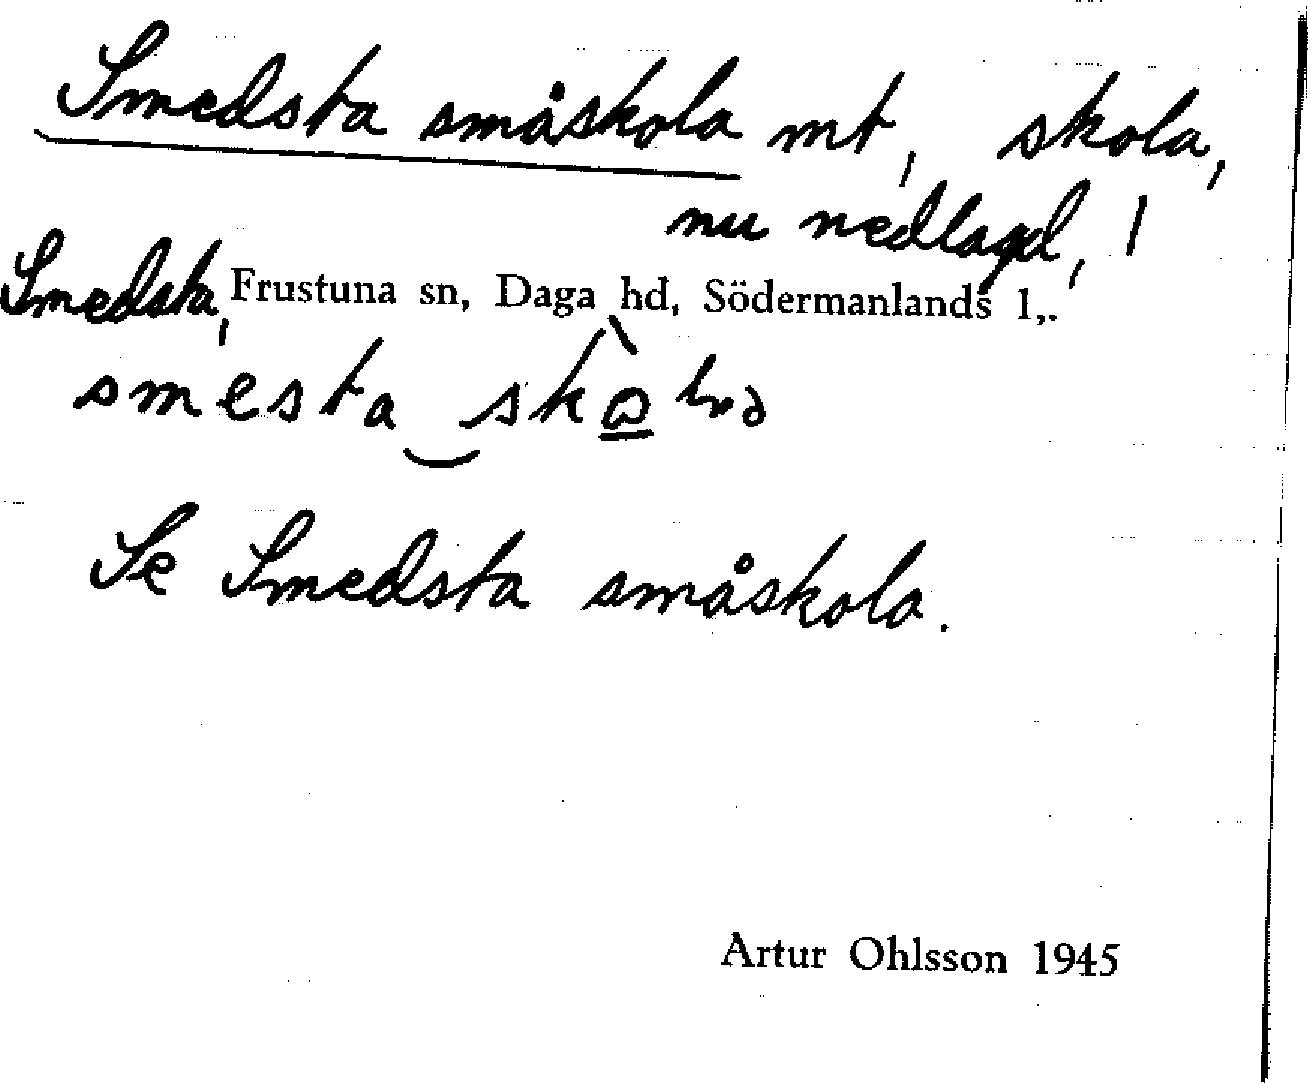 Smedsta småskola mt, skola,
nu nedlagd, 1
Smedsta, Frustuna sn, Daga hd, Södermanlands l.
smesta
Se Smedsta småskola.
Artur Ohlsson 1945